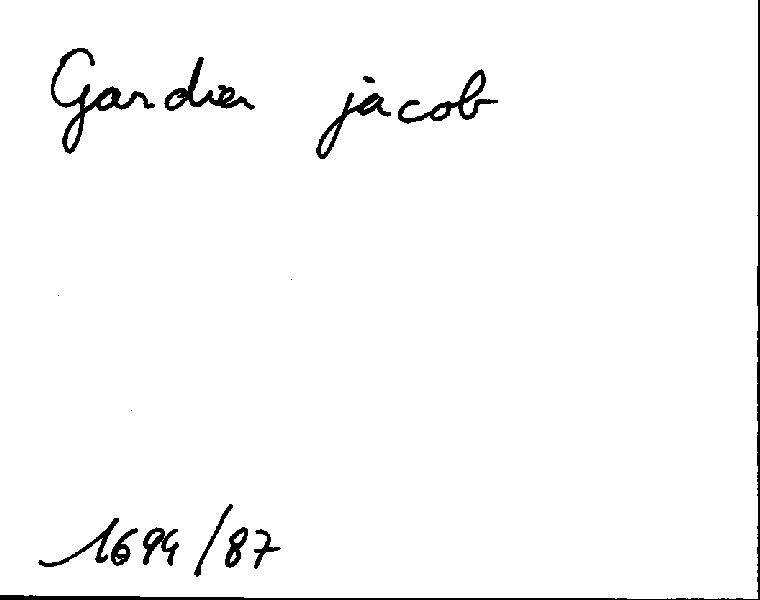 Gardier jacob
1694/87